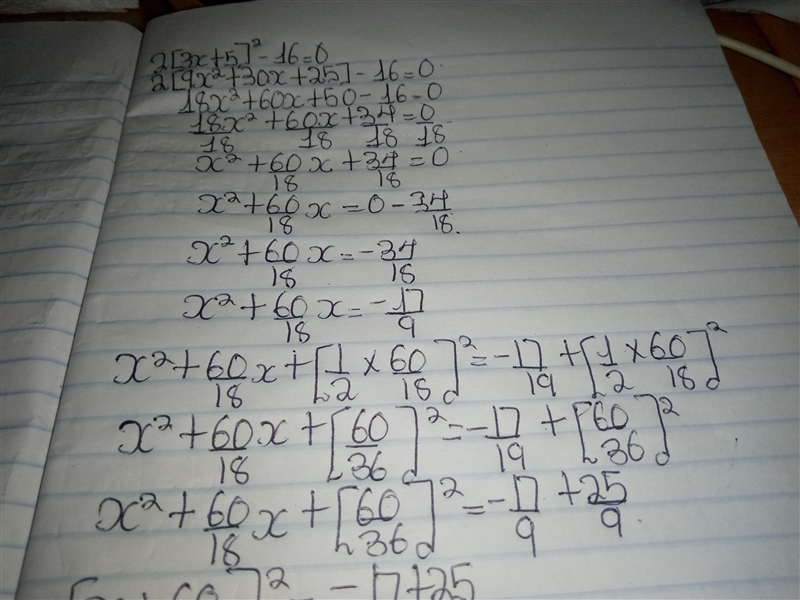 2[3x+5]² - 16=0
2[9x²+30x+25] - 16=0
18x²+60x+50-16=0
18x²/18 + 60x/18 + 34/18 = 0/18
x² + 60/18 x + 34/18 = 0
x² + 60/18 x = 0 - 34/18.
x² + 60/18 x = -34/18
x² + 60/18 x = -17/9
x² + 60/18 x + [1/2 × 60/18]² = -17/19 + [1/2 × 60/18]²
x² + 60/18 x + [60/36]² = -17/19 + [60/36]²
x² + 60/18 x + [60/36]² = -17/9 + 25/9